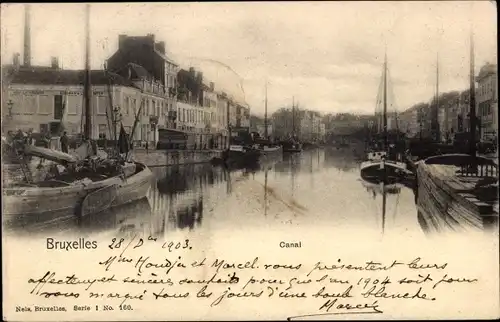 Bruxelles 28 Dbre 1903. Canal
Mme Houdju et Marcel vous présentent leurs
affectueux et sincères souhaits pour que 1904 soit pour
vous marqué tous les jours d'une boule blanche.
Marcel
Nels, Bruxelles, Serie 1 No. 160.